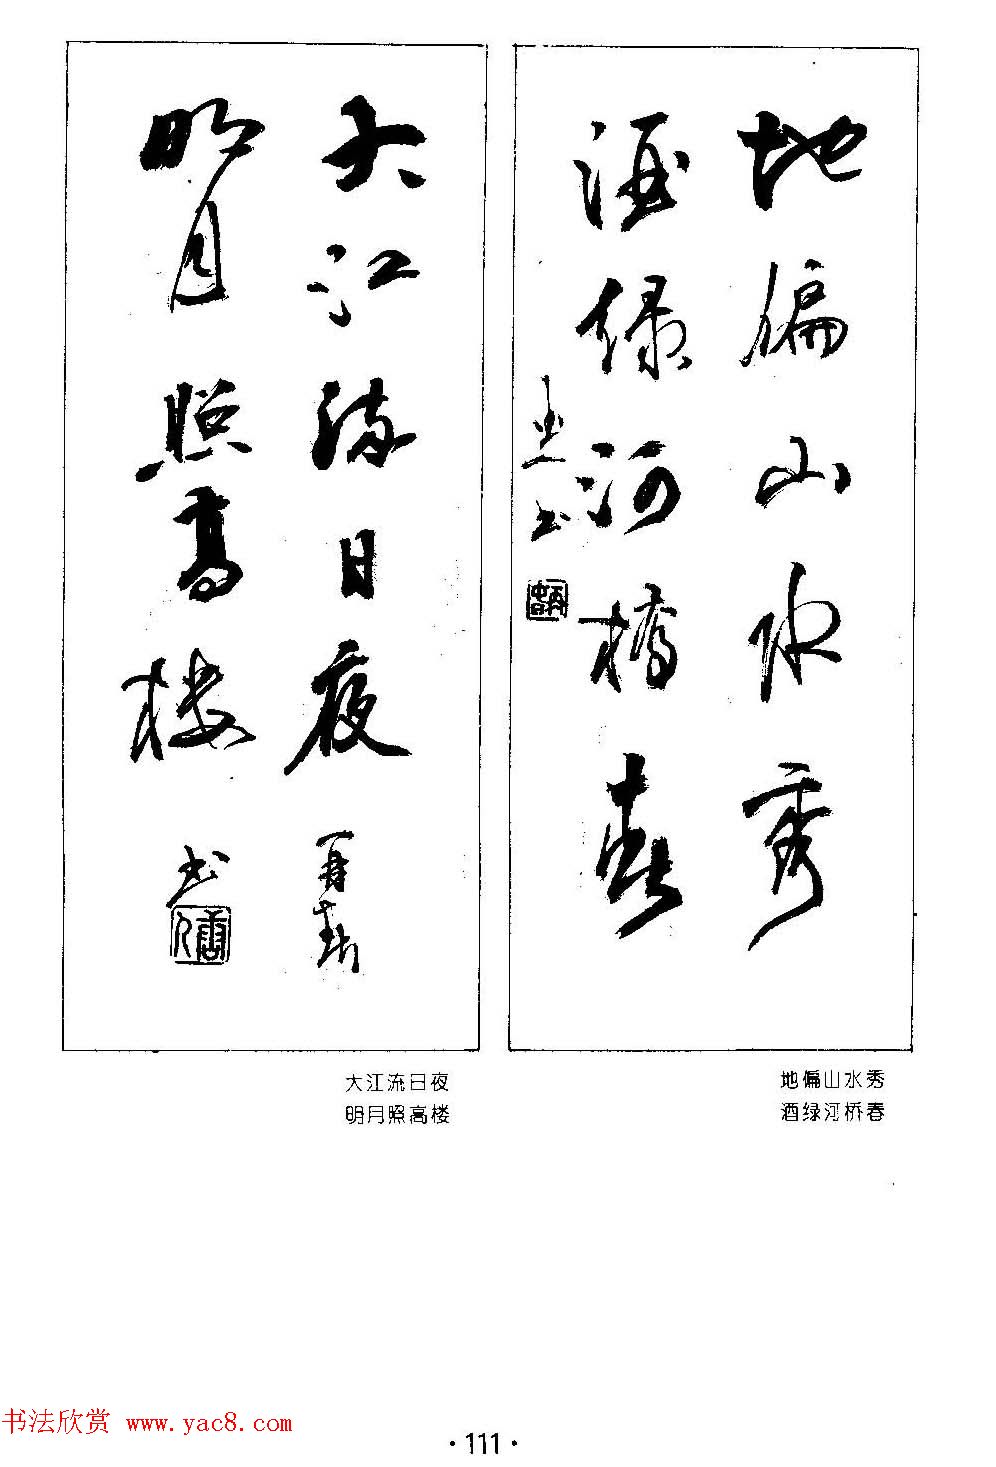 地偏山水秀
酒绿河桥春
大江流日夜
明月照高楼
书
地偏山水秀
酒绿河桥春
大江流日夜
明月照高楼
书法欣赏 www.yac8.com
·111·